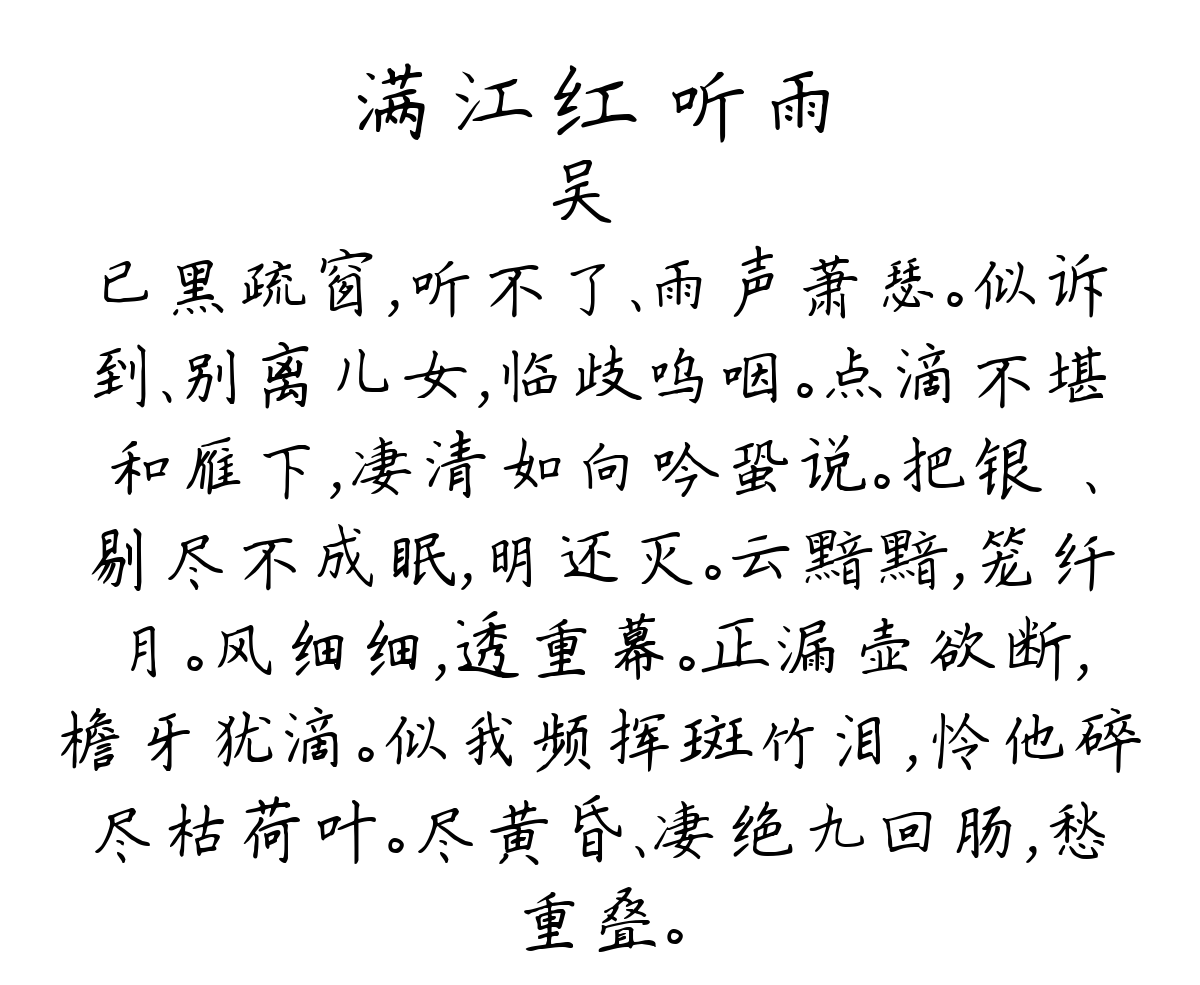 满江红 听雨
吴
已黑疏窗,听不了、雨声萧瑟。似诉
到、别离儿女,临歧呜咽。点滴不堪
和雁下,凄清如向吟蛩说。把银 、
剔尽不成眠,明还灭。云黯黯,笼纤
月。风细细,透重幕。正漏壶欲断,
檐牙犹滴。似我频挥斑竹泪,怜他碎
尽枯荷叶。尽黄昏、凄绝九回肠,愁
重叠。